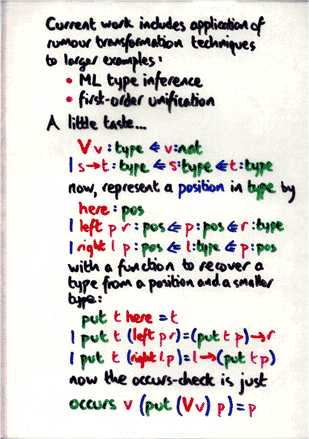 Current work includes application of
rumour transformation techniques
to larger examples:
• ML type inference
• first-order unification
A little taste...
V v : type ⇐ v : nat
| s→t : type ⇐ s : type ⇐ t : type
now, represent a position in type by
here : pos
| left p r : pos ⇐ p : pos ⇐ r : type
| right l p : pos ⇐ l : type ⇐ p : pos
with a function to recover a
type from a position and a smaller
type:
put t here = t
| put t (left p r) = (put t p) → r
| put t (right l p) = l → (put t p)
now the occurs-check is just
occurs v (put (V v) p) = p